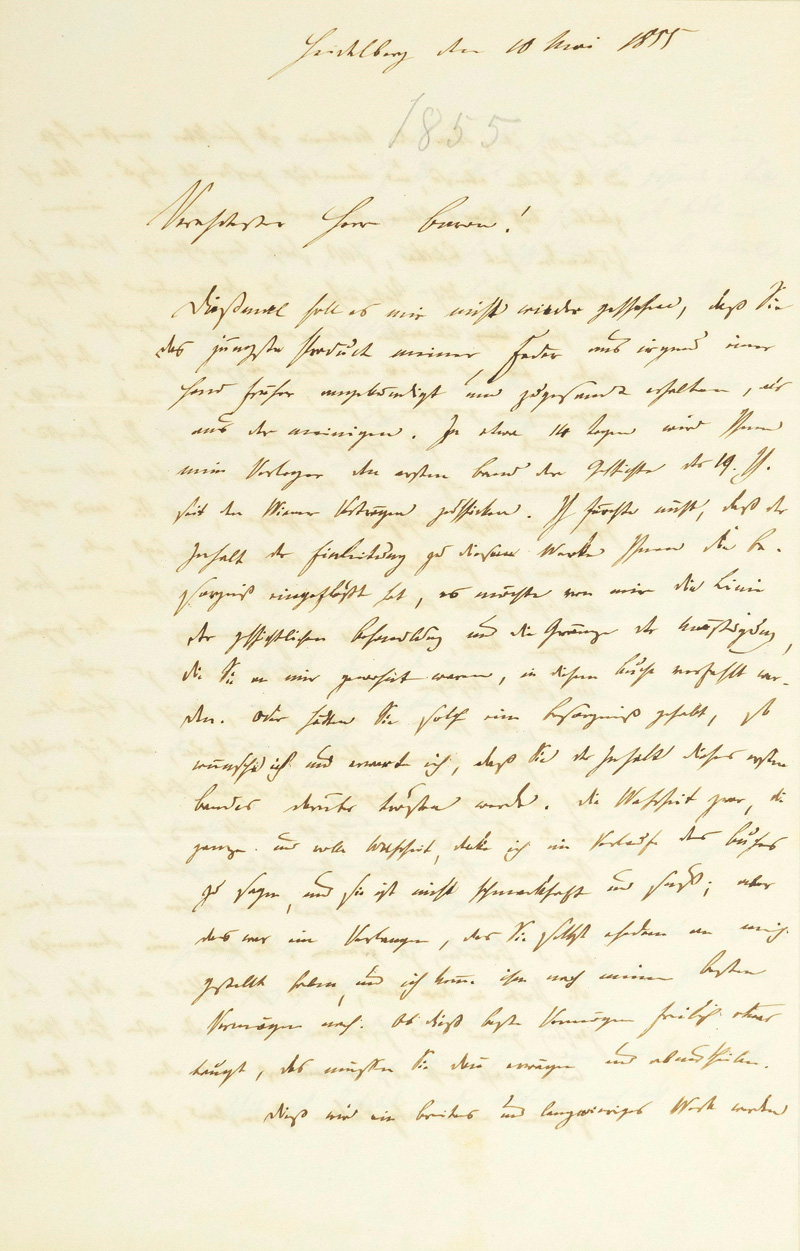 Heidelberg den 10 Mai 1855
1855
Verehrtester Herr Baron!
Dießmal soll es mir nicht wieder geschehen, daß Sie
das jüngste Product meiner Feder aus irgend einer
Hand früher angekündigt und zugesandt erhalten, als
aus der meinigen. In etwa 14 Tagen wird Ihnen
mein Verleger den ersten Band der Geschichte des 19. Jh.
seit den Wiener Verträgen zuschicken. Ich fürchte nicht, daß der
Inhalt der Einleitung zu diesem Werke Ihnen die Be-
sorgniß eingeflößt hat, es möchte von mir die Linie
der geschichtlichen Behandlung und die Gränze der Mäßigung,
die Sie an mir gewohnt waren, in diesem Buche verfehlt wer-
den. Oder hätten Sie solch eine Besorgniß gehabt, so
wünsche ich und erwarte ich, daß Sie der Inhalt dieses ersten
Bandes darüber trösten werde. Die Wahrheit zwar, die
ganze und volle Wahrheit, denke ich im Verlaufe des Buches
zu sagen, und sie ist nicht schmackhaft und süß; aber
das war ein Verlangen, das Sie selbst ehedem an mich
gestellt haben, und ich komme ihm nach meinem besten
Vermögen nach. Ob dieß beste Vermögen freilich etwas
taugt, das müssen Sie dann erwägen und aburtheilen.
Dieß wird ein breites und langwieriges Werk werden